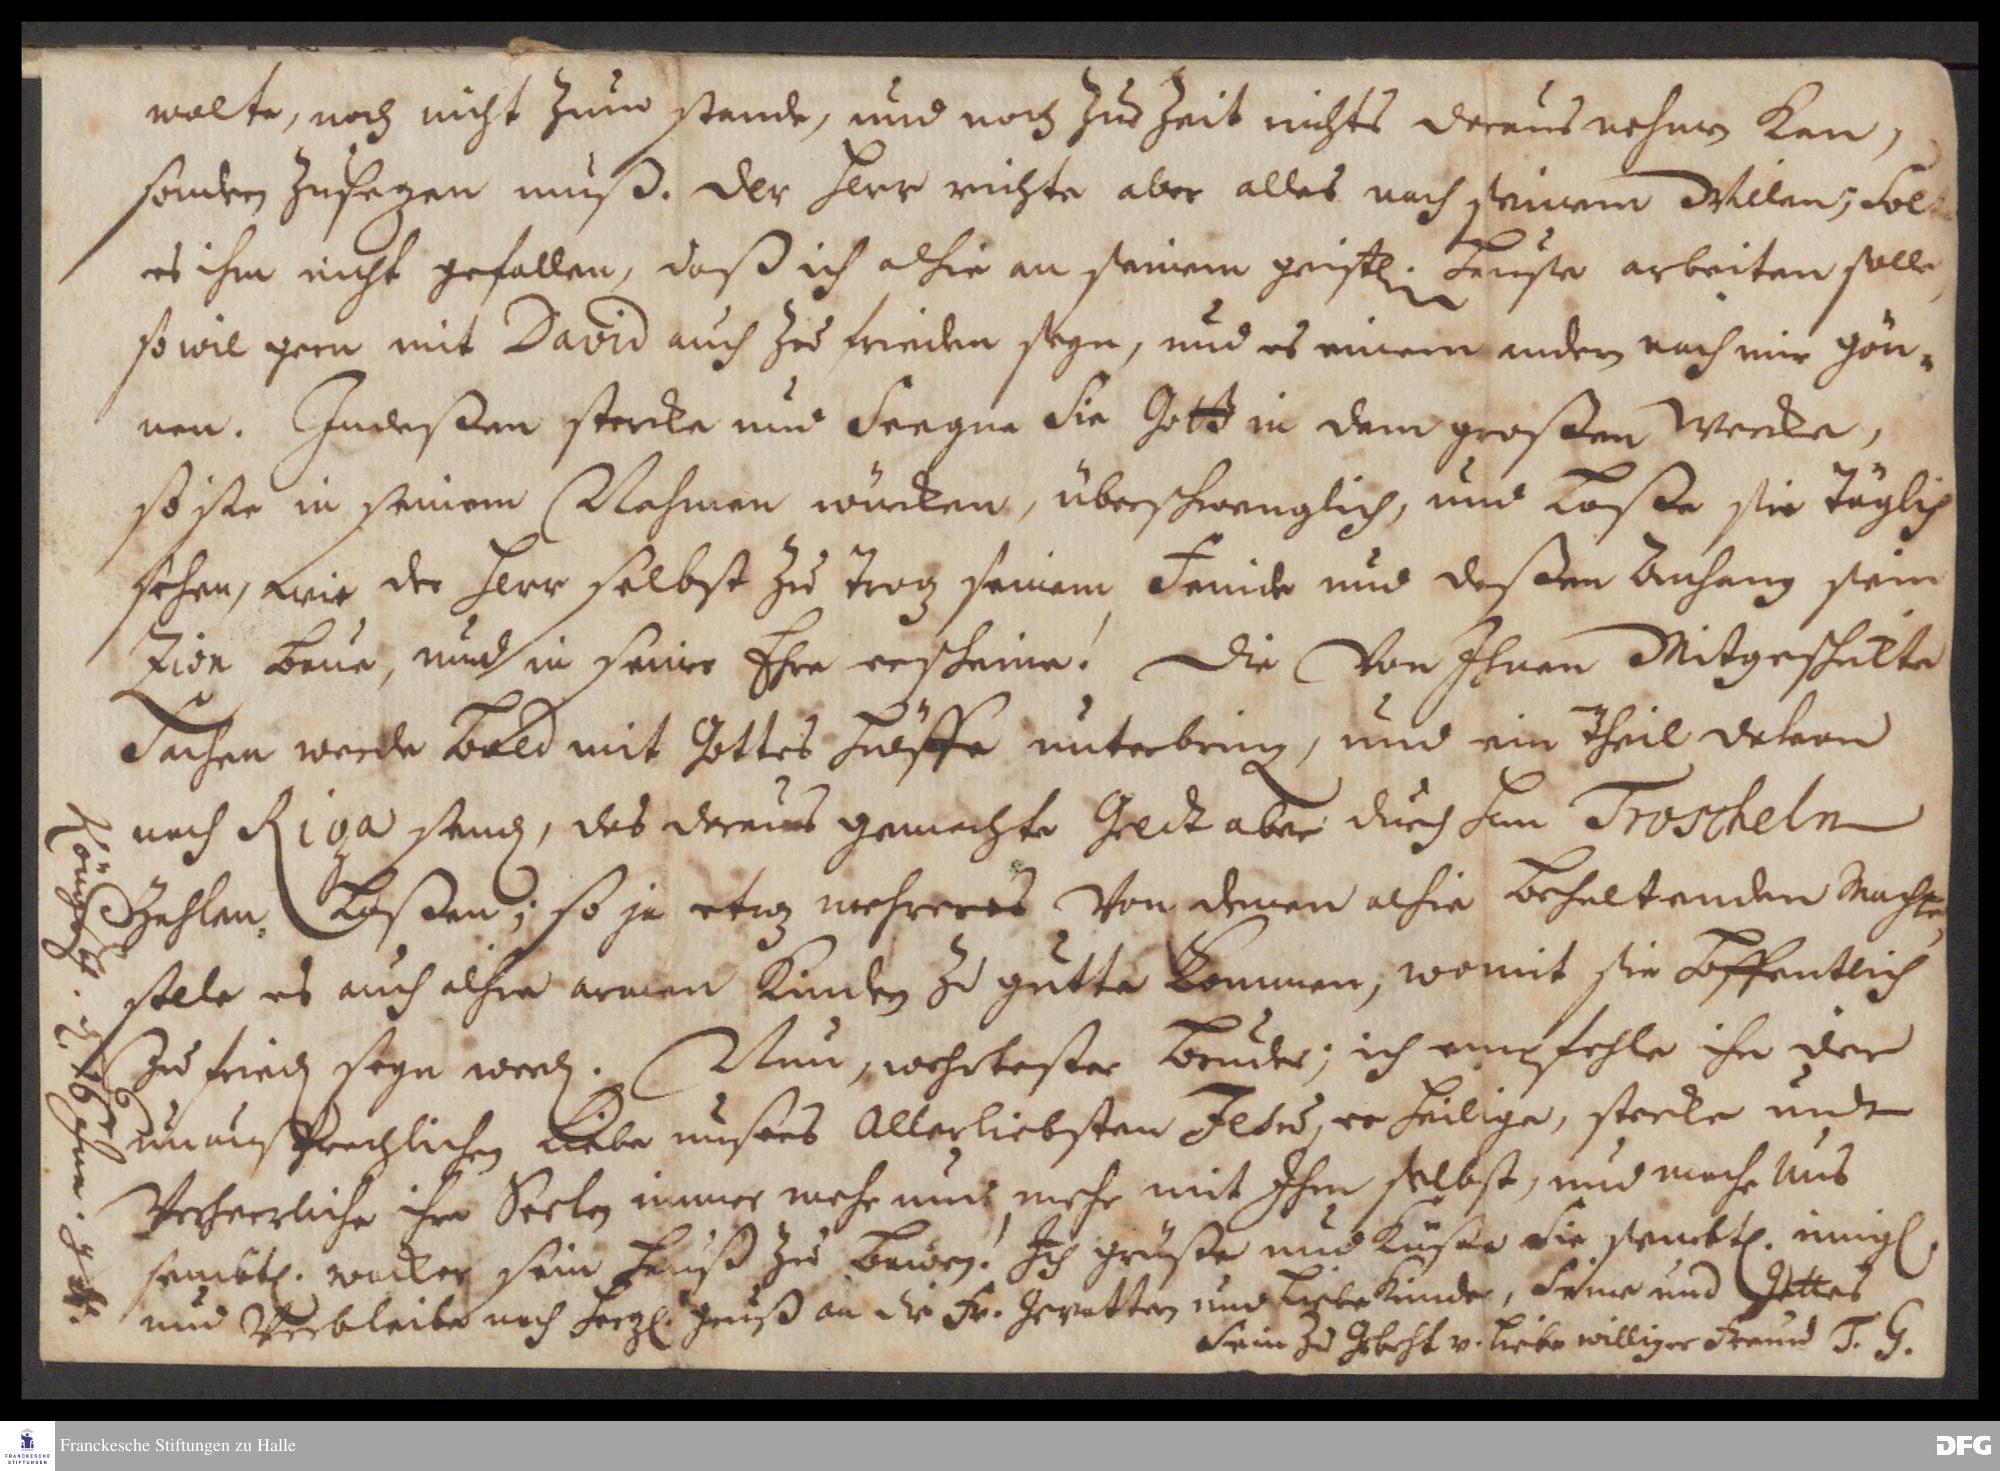 wolte, noch nicht zum stande, und noch zur Zeit nichts daraus nehmen kan,
sondern zusezen muß. Der Herr richte aber alles nach seinem Willen; Solt
es ihm nicht gefallen, daß ich alhie an seinem geistl. Hause arbeiten solle,
so wil gern mit David auch zu frieden seyn, und es einem andern nach mir gön-
nen. Indeßen stercke und Seegne Sie Gott in dem großen Wercke,
so sie in seinem Nahmen würcken, überschwenglich, und laße sie täglich
sehen, wie der Herr selbst zu troz seinem Feinde und deßen Anhang sein
Zion baue, und in seiner Ehre erscheine! Die von Ihnen Mitgeschickte
Sachen werde bald mit Gottes Hülffe unterbringen, und ein Theil davon
nach Riga senden, das daraus gemachte Geld aber durch Herrn Troscheln
zahlen laßen; so ja etwas mehreres von denen alhie behaltenden Machte,
solle es auch alhie armen Kindern zu gutte kommen, womit sie hoffentlich
zu frieden seyn werden. Nun, wehrtester Bruder; ich empfehle ihn der
unaussprechlichen Liebe unsers Allerliebsten Jesu, er heilige, stercke und
verherrliche ihre Seelen immer mehr und mehr mit Ihm selbst, und mache Uns
sembtl. wacker sein Hauß zu bauen! Ich grüße und Küße Sie sembtl. innigl.
und Verbleibe nach herzl. gruß an die Fr. Gevatterin und liebe Kinder, Seine und Gottes
Sein zu Gebeht u. Liebe williger Freund T. G.
Königsb. d. 16 Jun.
Franckesche Stiftungen zu Halle
FRANCKESCHE
STIFTUNGEN
DFG